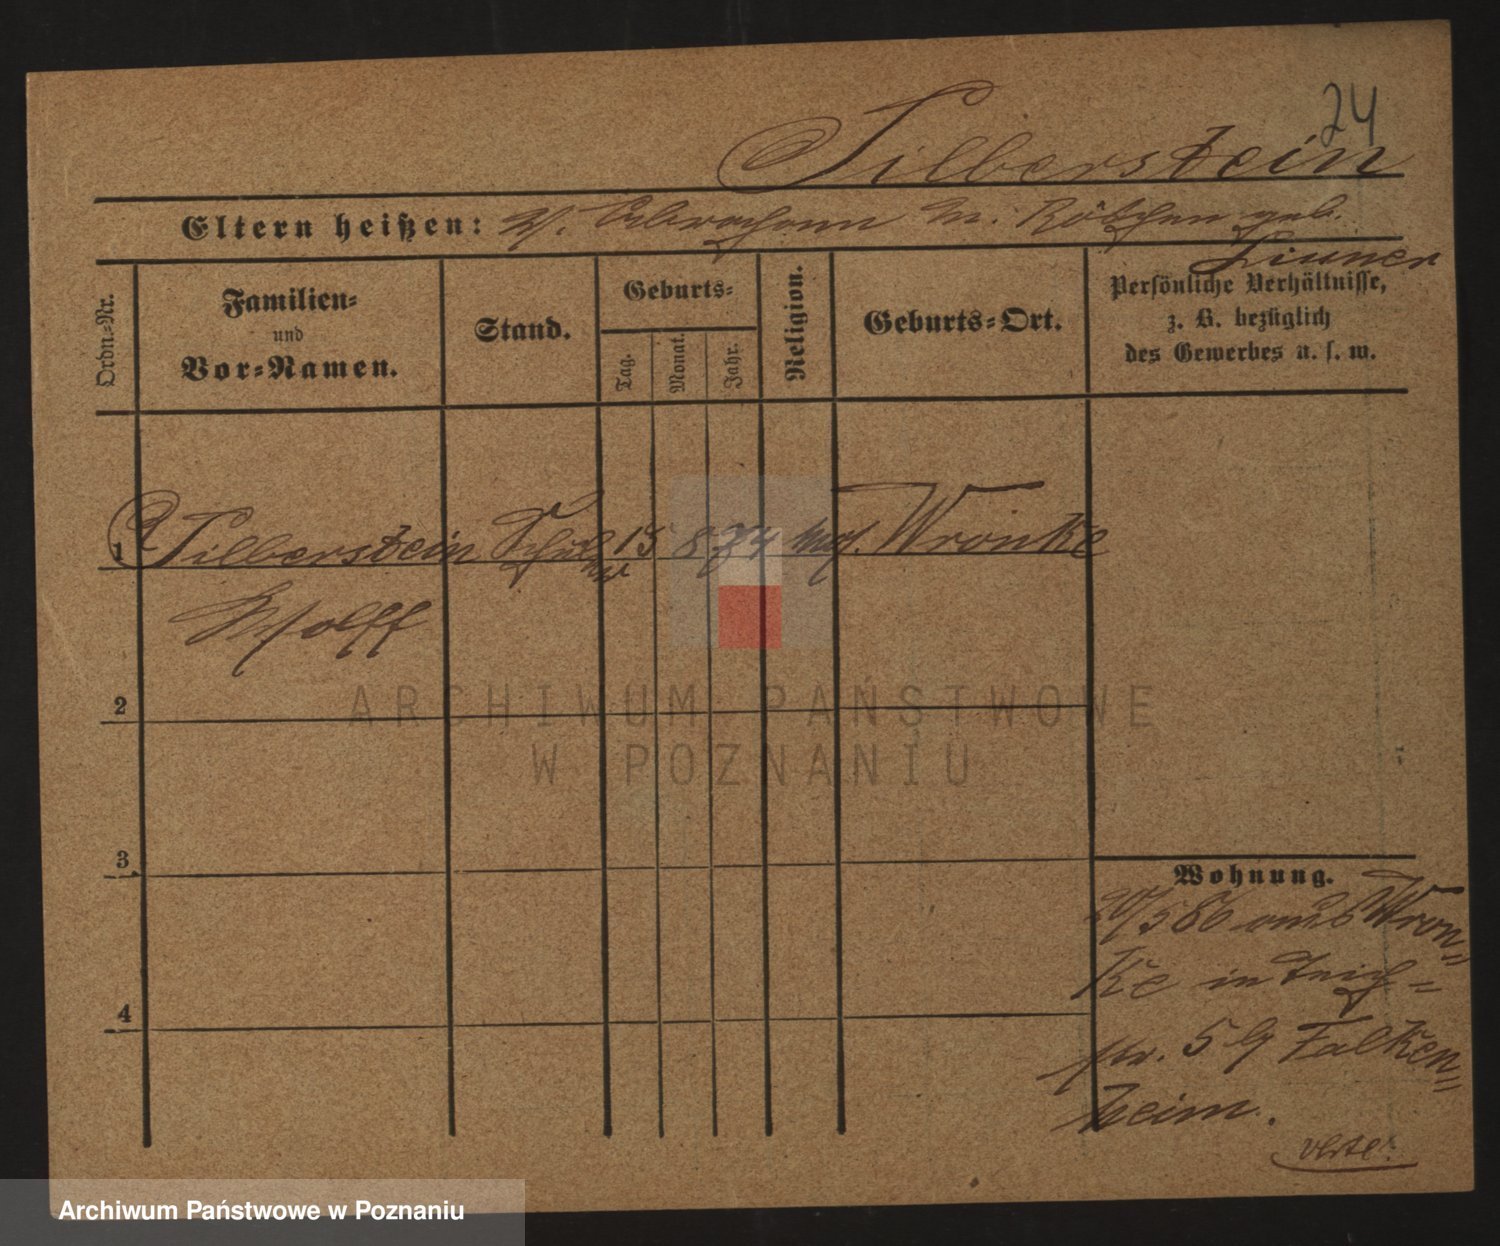 24
Silberstein
Eltern heißen: V. Abraham M. Röschen geb.
Ordn.-Nr.
Familien-
und
Vor-Namen.
Stand.
Geburts-
Tag.
Monat.
Jahr.
Religion.
Geburts-Ort.
Persönliche Verhältnisse,
z. B. bezüglich
des Gewerbes u. s. w.
1 Silberstein Schüler 15 8 74 mos. Wronke
Wolff
2
3
4
Wohnung.
20/5 86 aus Wron-
ke in Teich-
str. 5 b/ Falken-
heim.
ARCHIWUM PAŃSTWOWE
W POZNANIU
Archiwum Państwowe w Poznaniu